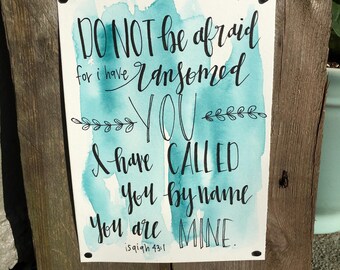 DO NOT be afraid
for i have ransomed
YOU
I have CALLED
you by name
you are MINE.
isaiah 43:1